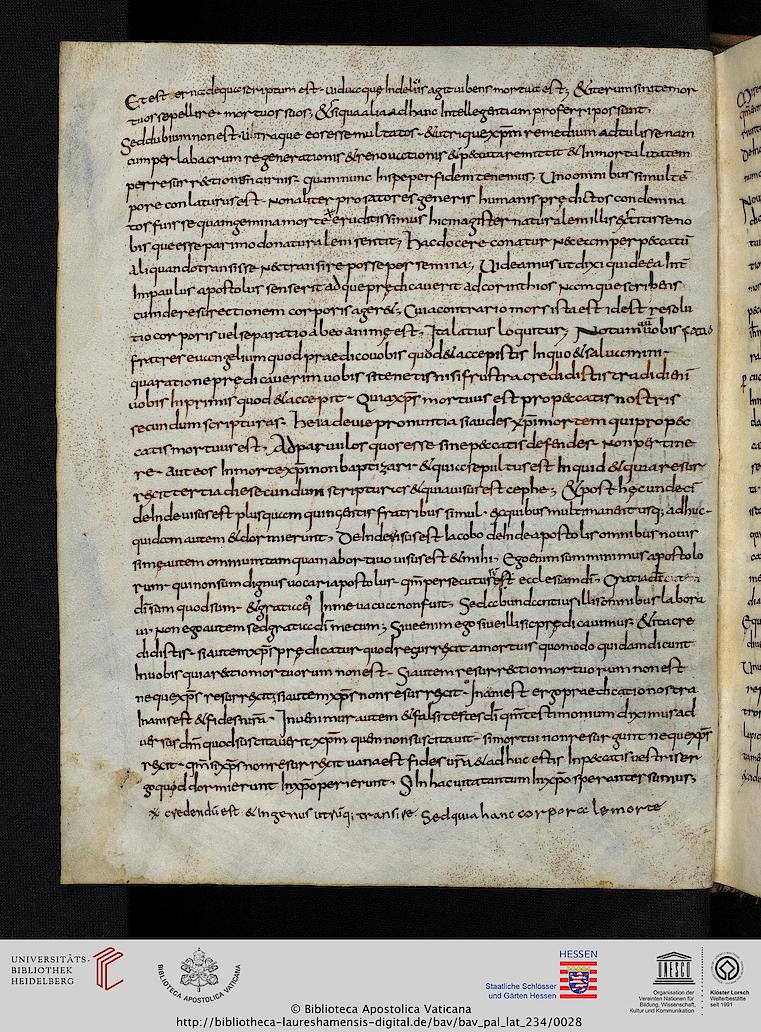 Et est er nadequa scriptum est uiduaque Indeliciis agit uibens mortua est; & iterum sinite mor
tuos sepellire mortuos suos; & siqua alia adhanc Intellegentiam proferri possunt.
Sed dubium non est utraque eos esse multatos & utrique xpm remedium adtulisse nam
cum per labacrum regenerationis & renouationis & peccata remittit & Inmortalitatem
per resurrectionem carnis quam nunc Inspe per fidem tenemus. Uno omnibus simul te
pore conlaturus est Non aliter pro satore generis humani prędictos condemna
tos fuisse quam gemina morte eruditissimus hic magister naturalem illis extitisse no
bisque esse pari modo naturalem sentit; Hac docere conatur nec eam per peccatu
aliquando transisse nec transire posse per semina; Uideamus ut dixi quid ea Int
Impaulus apostolus senserit adque prędicauerit ad corinthios Namque scribens
cum de resurrectionem corporis ager&. Cuia contrario mors ista est idest resolu
tio corporis uel separatio abeo animę est; Ita latius loquitur; Notum uobis facio
fratres euangelium quod praedicouobis quod & accepistis Inquo & saluamini
qua ratione prędicauerim uobis si tenetis nisi frustra credidistis tradidi eni
uobis Inprimis quod & accepi Quia xps mortuus est pro peccatis nostris
secundum scripturas. Heia deuie pronuntia si audes xpi mortem qui pro pec
catis mortuus est. Ad paruulos quos esse sine peccatis defendes non pertine
re aut eos Inmorte xpi non baptizari & quia sepultus est Inquid & quia resur
rexit tertia die secundum scripturas & quia uisus est cephe; & post hęc undeci
deInde uisus est plusquam quingentis fratribus simul ex quibus multi manent usq; adhuc
quidam autem & dormierunt. DeInde uisus est Iacobo deInde apostolis omnibus nouis
simę autem omnium tamquam abortiuo uisus est & mihi. Ego enim sum minimus apostolo
rum qui non sum dignus uocari apostolus qm persecutus est ecclesiam di. Gratia
di sum quod sum & gratia ei Inme uacua non fuit. Sed abundantius illis omnibus labora
ui Non ego autem sed gratia di mecum; Siue enim ego siue illi sic prędicauimus & ita cre
didistis si autem xps prędicatur quod resurrexit amortuis quomodo quidam dicunt
Inuobis quia resurrectio mortuorum non est Si autem resurrectio mortuorum non est
neque xps resurrexit, si autem xps non resurrexit. Inanis est ergo praedicatio nostra
Inanis est & fides nra. Inuenimur autem & falsi testes di qm testimonium diximus ad
uersus dm quod suscitauerit xpm quem non suscitauit si mortui non resurgunt neque xps
rexit qm si xps non resurrexit uana est fides ura & adhuc estis Inpeccatis uestris er
go quod dormierunt Inxpo perierunt. Si Inhac uita tantum Inxpo sperantes sumus;
credendu est & Ingenus utruq; transire. Sed quia hanc corporale morte
UNIVERSITÄTS-
BIBLIOTHEK
HEIDELBERG
BIBLIOTHECA APOSTOLICA VATICANA
HESSEN
Staatliche Schlösser
und Gärten Hessen
UNESCO
Organisation der
Vereinten Nationen für
Bildung, Wissenschaft,
Kultur und Kommunikation
Kloster Lorsch
Welterbestätte
seit 1991
© Biblioteca Apostolica Vaticana
http://bibliotheca-laureshamensis-digital.de/bav/bav_pal_lat_234/0028